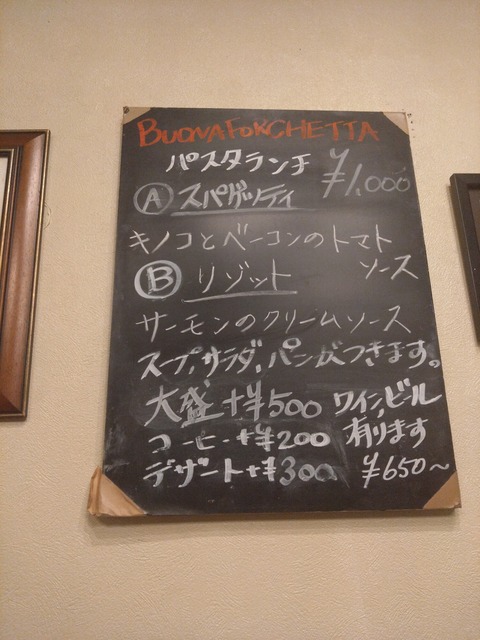 BUONAFORCHETTA
パスタランチ ¥1,000
Ⓐ スパゲッティ
キノコとベーコンのトマト
ソース
Ⓑ リゾット
サーモンのクリームソース
スープ,サラダ,パンがつきます。
大盛 +¥500
コーヒー +¥200
デザート +¥300
ワイン,ビール
有ります
¥650〜